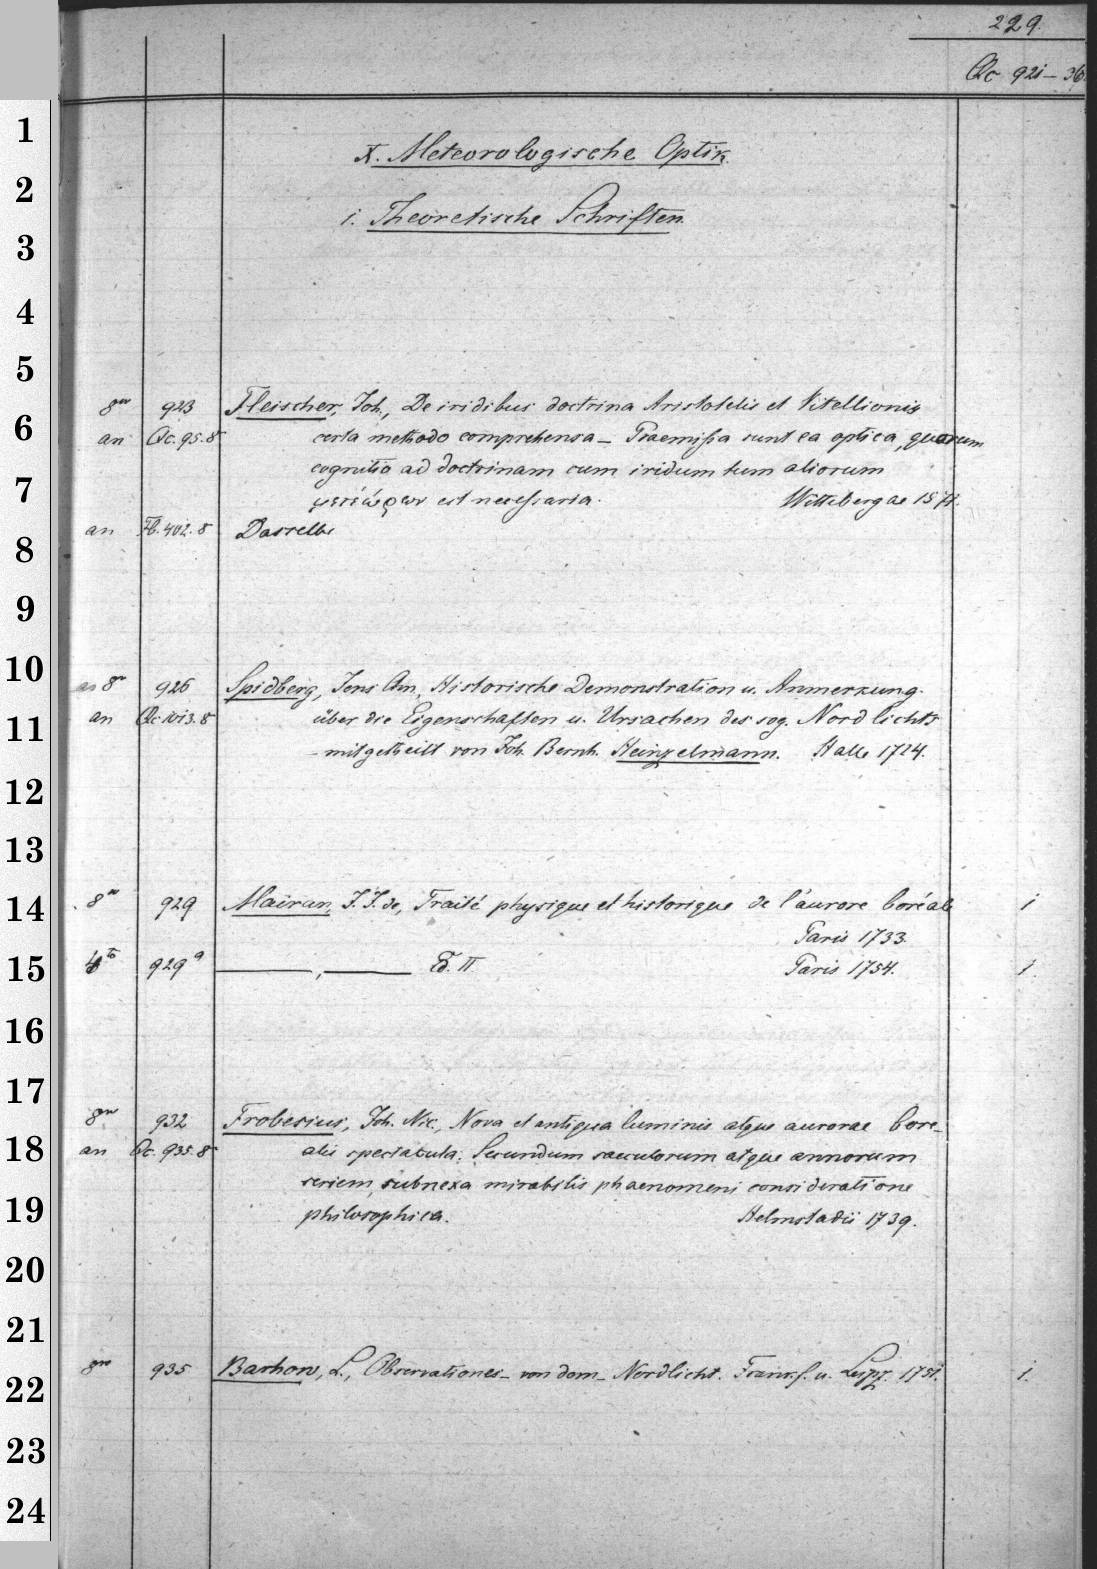 229.
Qc 921-36.
X. Meteorologische Optik.
1. Theoretische Schriften.
8vo 923 Fleischer, Joh., De iridibus doctrina Aristotelis et Vitellionis
an Qc. 95. 8 certa methodo comprehensa – Praemissa sunt ea optica, quorum
cognitio ad doctrinam cum iridum tum aliorum
μετεώρων est necessaria. Wittebergae 1571.
an Fb. 402. 8 Dasselbe
an 8vo 926 Spidberg, Jens Chr., Historische Demonstration u. Anmerkung.
an Qc 1013. 8 über die Eigenschaften u. Ursachen des sog. Nordlichts
– mitgetheilt von Joh. Bernh. Heinzelmann. Halle 1724.
8vo 929 Mairan, J. J. de, Traité physique et historique de l'aurore boréale 1
Paris 1733.
4to 929a ———, ——— Ed. II. Paris 1754. 1.
8vo 932 Frobesius, Joh. Nic., Nova et antiqua luminis atque aurorae bore-
an Qc. 935. 8 alis spectacula; Secundum saeculorum atque annorum
seriem, subnexa mirabilis phaenomeni consideratione
philosophica. Helmstadii 1739.
8vo 935 Barhow, L., Observationes – von dem – Nordlicht. Frankf. u. Leipz. 1751. 1.
1
2
3
4
5
6
7
8
9
10
11
12
13
14
15
16
17
18
19
20
21
22
23
24